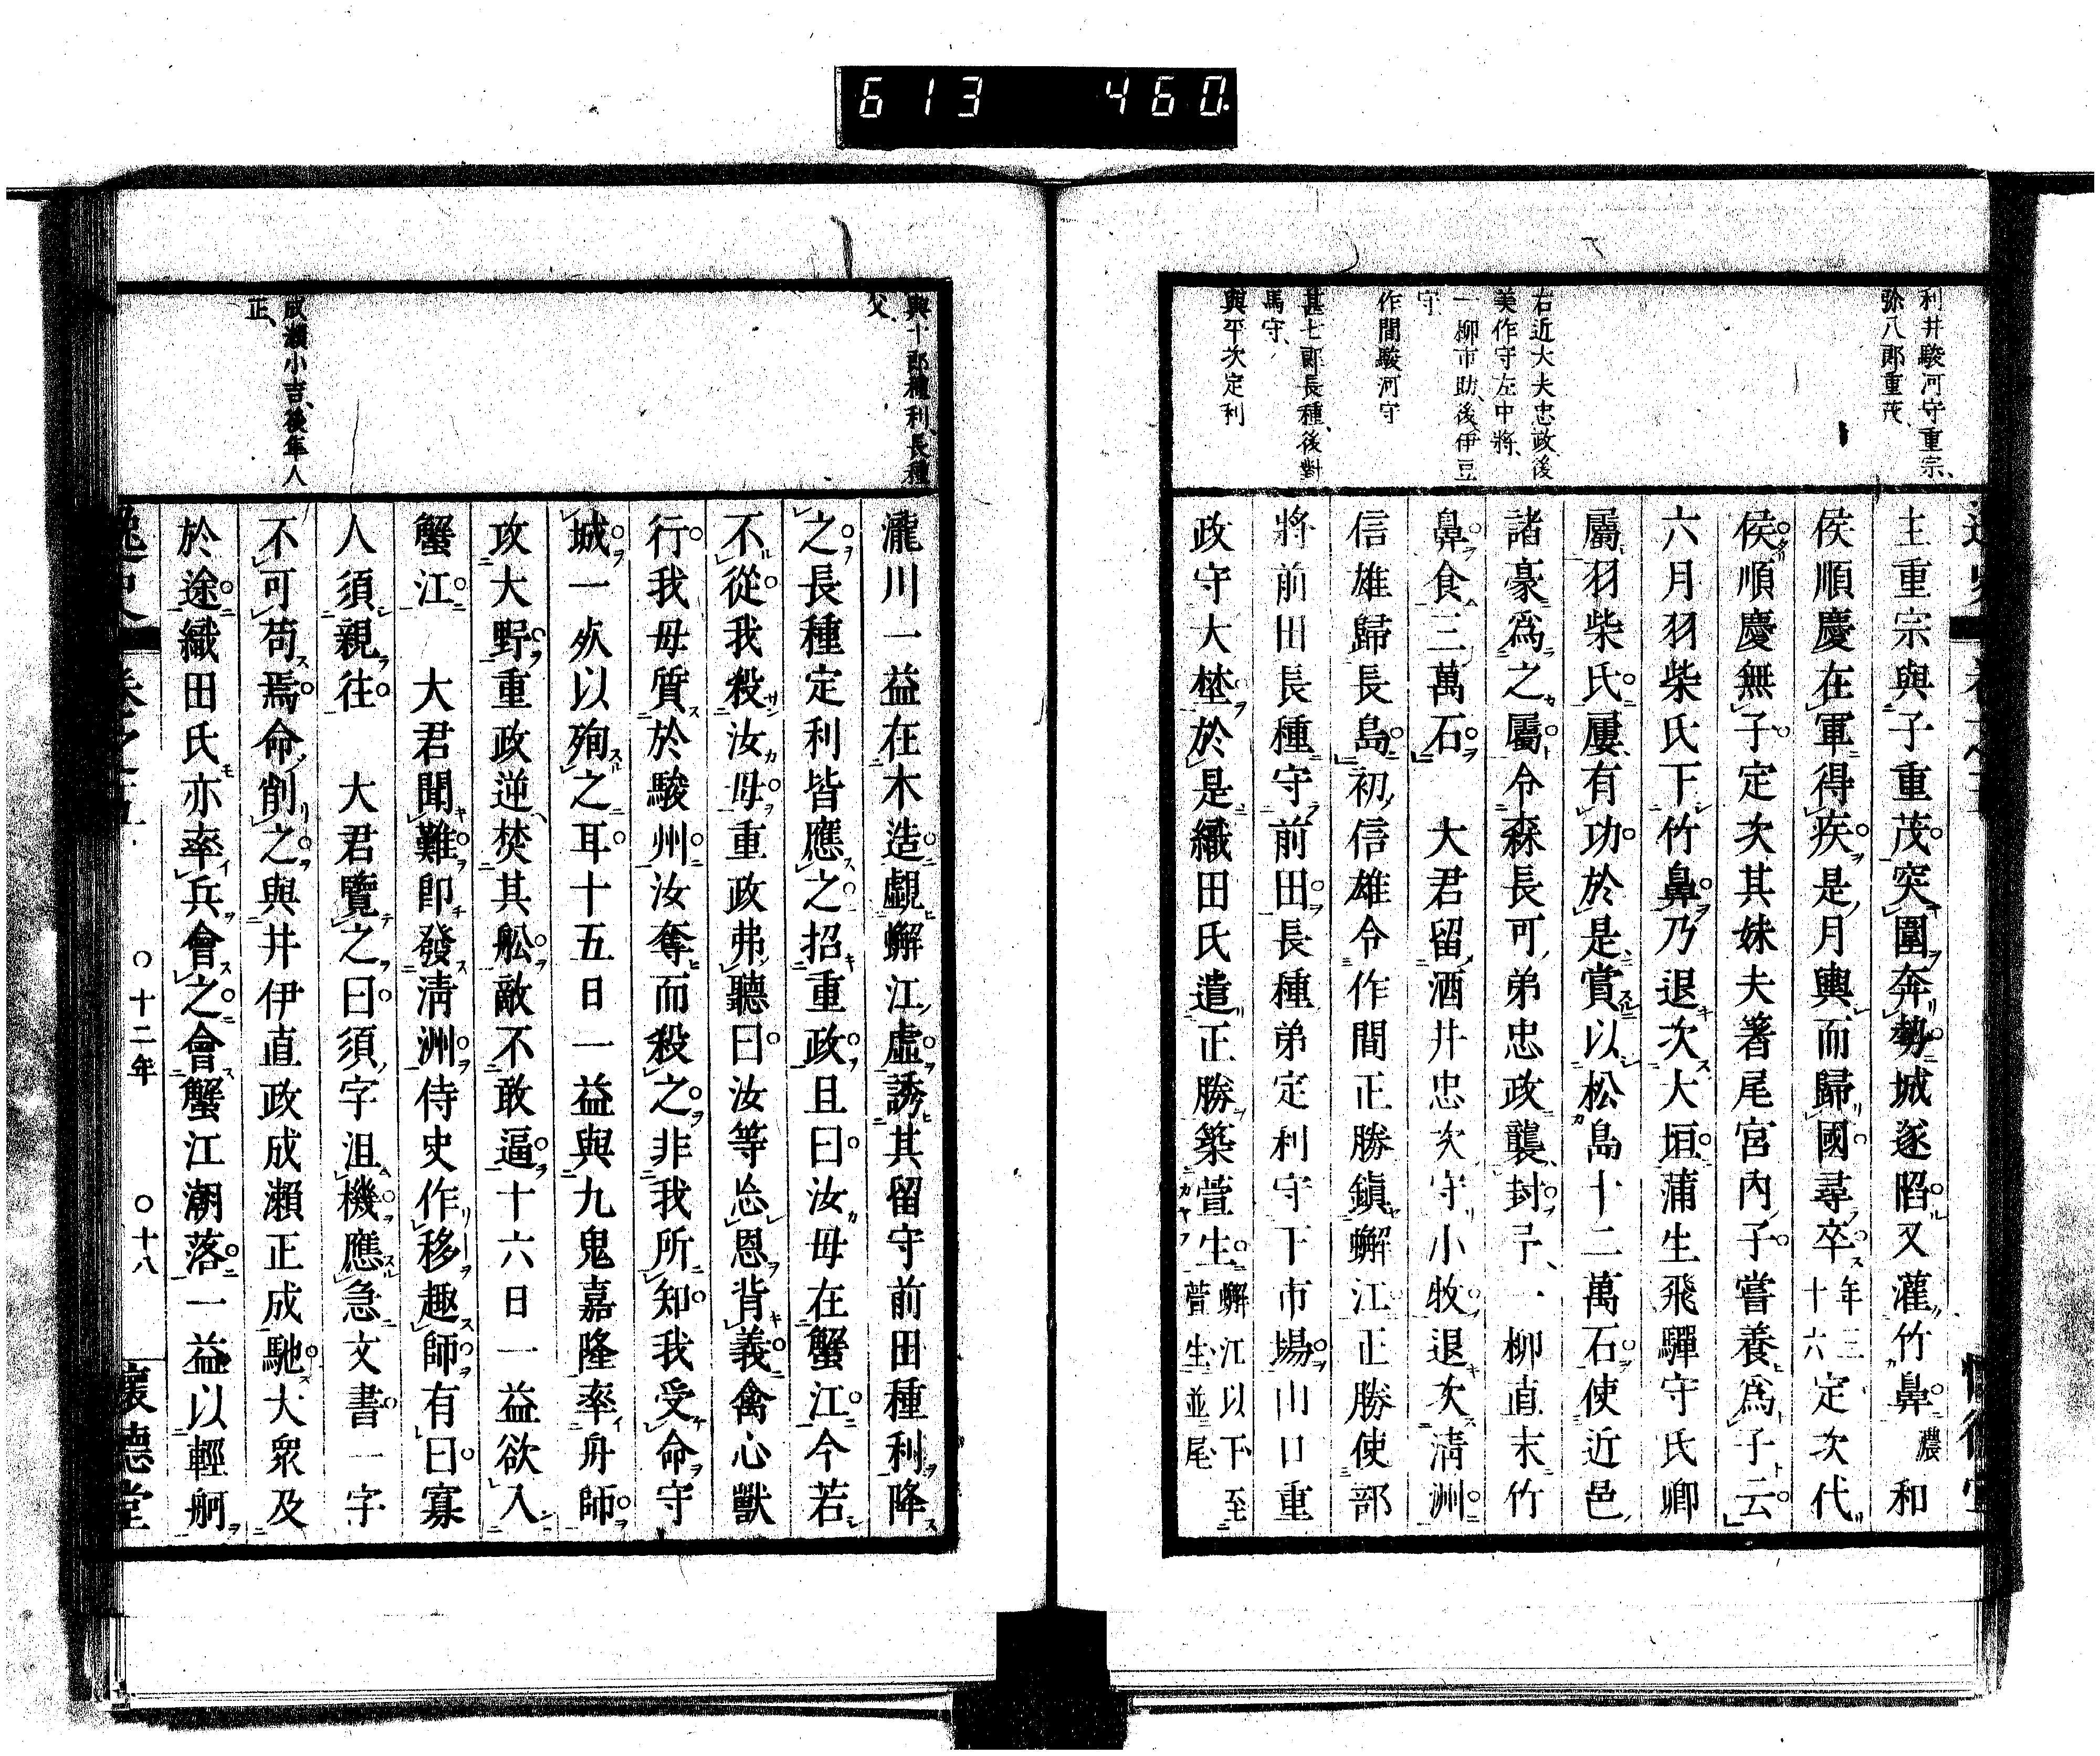 613 460
利井駿河守重宗、
弥八郎重茂、
右近大夫忠政後
美作守左中將、
一柳市助、後伊豆
守
作間駿河守
甚七郎長種、後對
馬守、
與平次定利
主重宗與子重茂突圍奔勢城遂陷又灌竹鼻濃和
侯順慶在軍得疾是月輿而歸國尋卒年三十六定次代
侯順慶無子定次其妹夫箸尾宮內子嘗養爲子云
六月羽柴氏下竹鼻乃退次大垣蒲生飛驒守氏鄉
屬羽柴氏屢有功於是賞以松島十二萬石使近邑
諸豪爲之屬令森長可弟忠政襲封予一柳直末竹
鼻食三萬石　大君留酒井忠次守小牧退次淸洲
信雄歸長島初信雄令作間正勝鎭蠏江正勝使部
將前田長種守前田長種弟定利守下市場山口重
政守大埜於是織田氏遣正勝築萱生蠏江以下至萱生並尾
與十郎種利、長種
父、
成瀨小吉、後隼人
正、
瀧川一益在木造覰蠏江虛誘其留守前田種利降
之長種定利皆應之招重政且曰汝母在蟹江今若
不從我殺汝母重政弗聽曰汝等忘恩背義禽心獸
行我母質於駿州汝奪而殺之非我所知我受命守
城一死以殉之耳十五日一益與九鬼嘉隆率舟師
攻大野重政逆焚其舩敵不敢逼十六日一益欲入
蟹江　大君聞難卽發淸洲侍史作移趣師有曰寡
人須親往　大君覽之曰須字沮機應急文書一字
不可苟焉命削之與井伊直政成瀨正成馳大衆及
於途織田氏亦率兵會之會蟹江潮落一益以輕舸
逸史　卷之五　○十二年　○十八　懷德堂